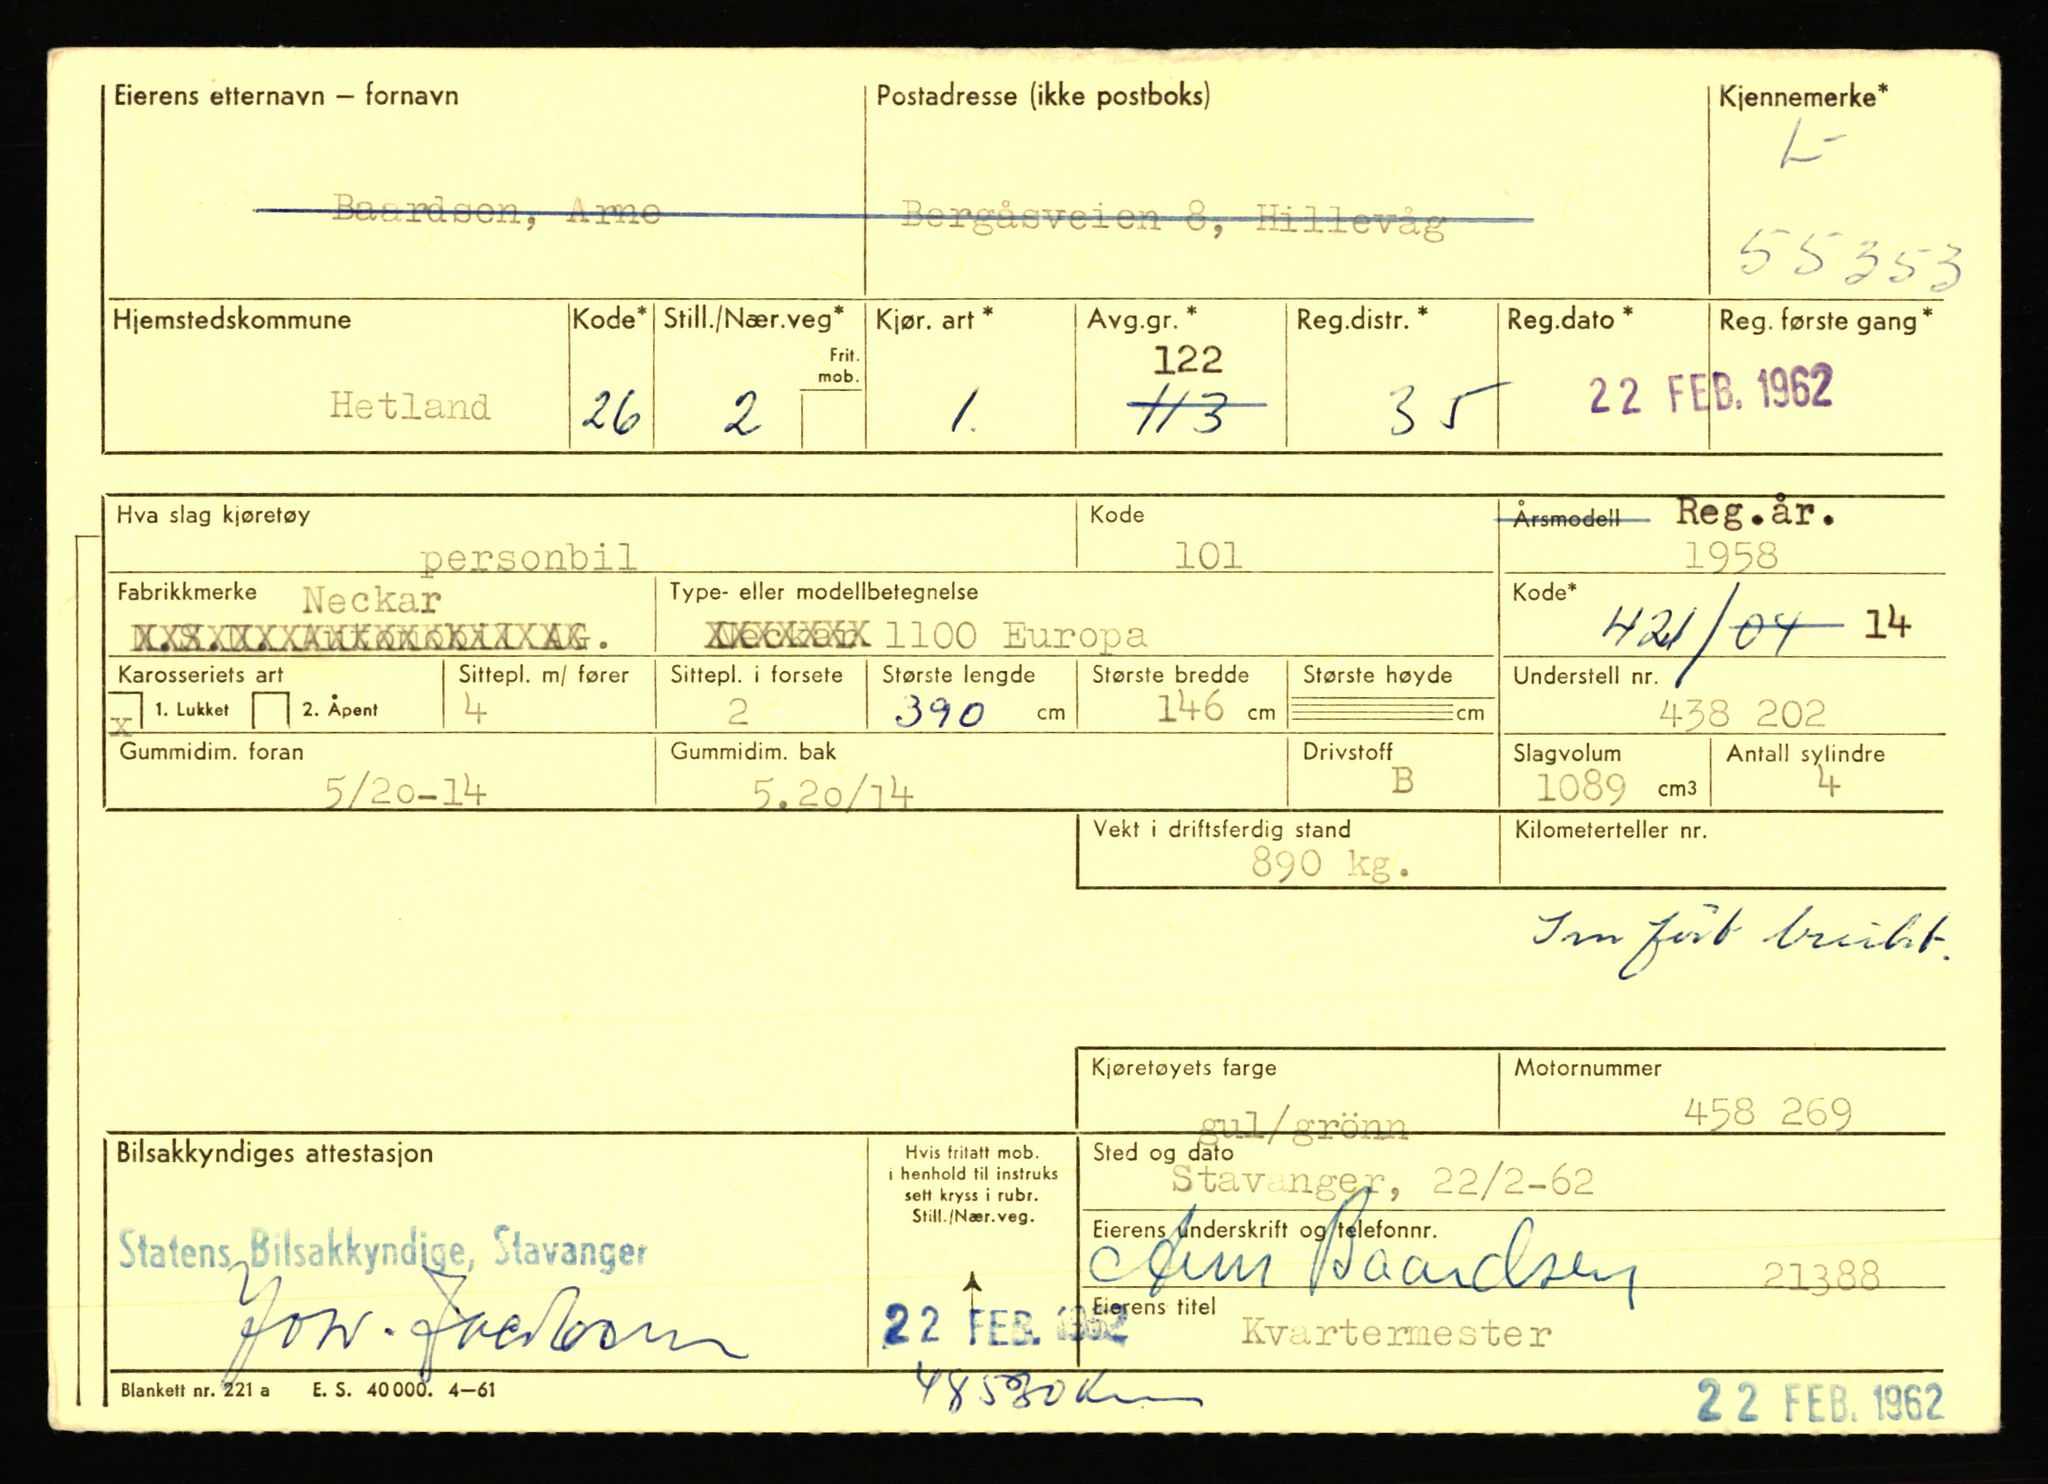 Eierens etternavn – fornavn Postadresse (ikke postboks) Kjennemerke*
L-
Baardsen, Arne Bergåsveien 8, Hillevåg
55353
Hjemstedskommune Kode* Still./Nær.veg* Kjør. art * Avg.gr. * Reg.distr. * Reg.dato * Reg. første gang *
Frit.
mob.
122
Hetland 26 2 1. 113 35 22 FEB. 1962
Hva slag kjøretøy Kode Årsmodell Reg.år.
personbil 101 1958
Fabrikkmerke Neckar Type- eller modellbetegnelse Kode*
N.S.U. Automobil AG. Neckar 1100 Europa 421/04 14
Karosseriets art Sittepl. m/ fører Sittepl. i forsete Største lengde Største bredde Største høyde Understell nr.
x 1. Lukket 2. Åpent 4 2 390 cm 146 cm cm 438 202
Gummidim. foran Gummidim. bak Drivstoff Slagvolum Antall sylindre
5/20-14 5.20/14 B 1089 cm3 4
Vekt i driftsferdig stand Kilometerteller nr.
890 kg.
Innført brukt.
Kjøretøyets farge Motornummer
gul/grönn 458 269
Bilsakkyndiges attestasjon
Hvis fritatt mob.
i henhold til instruks
sett kryss i rubr.
Still./Nær.veg.
Sted og dato
Stavanger, 22/2-62
Eierens underskrift og telefonnr.
Statens Bilsakkyndige, Stavanger
Arne Baardsen 21388
22 FEB. 1962
Eierens titel
Kvartermester
48530 Km
Blankett nr. 221 a E. S. 40 000. 4–61
22 FEB. 1962